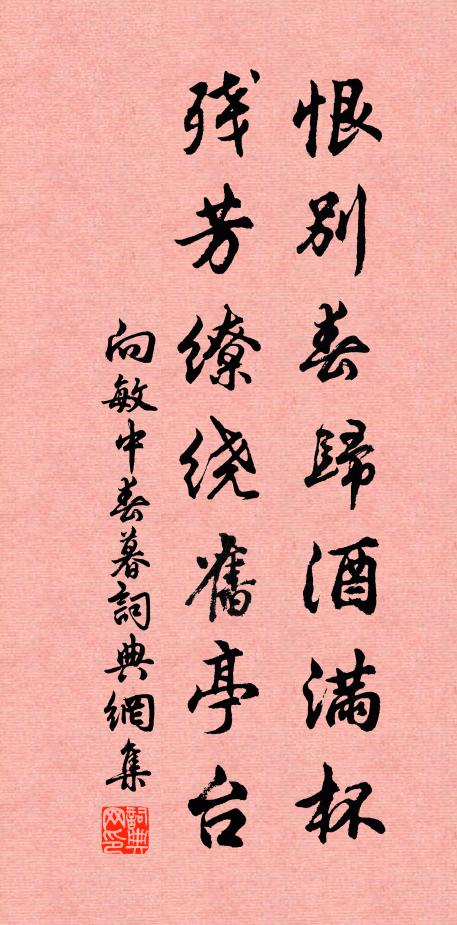 恨别春歸酒滿杯
残芳缭绕舊亭台
向敏中春暮詞典網集
詞典网印